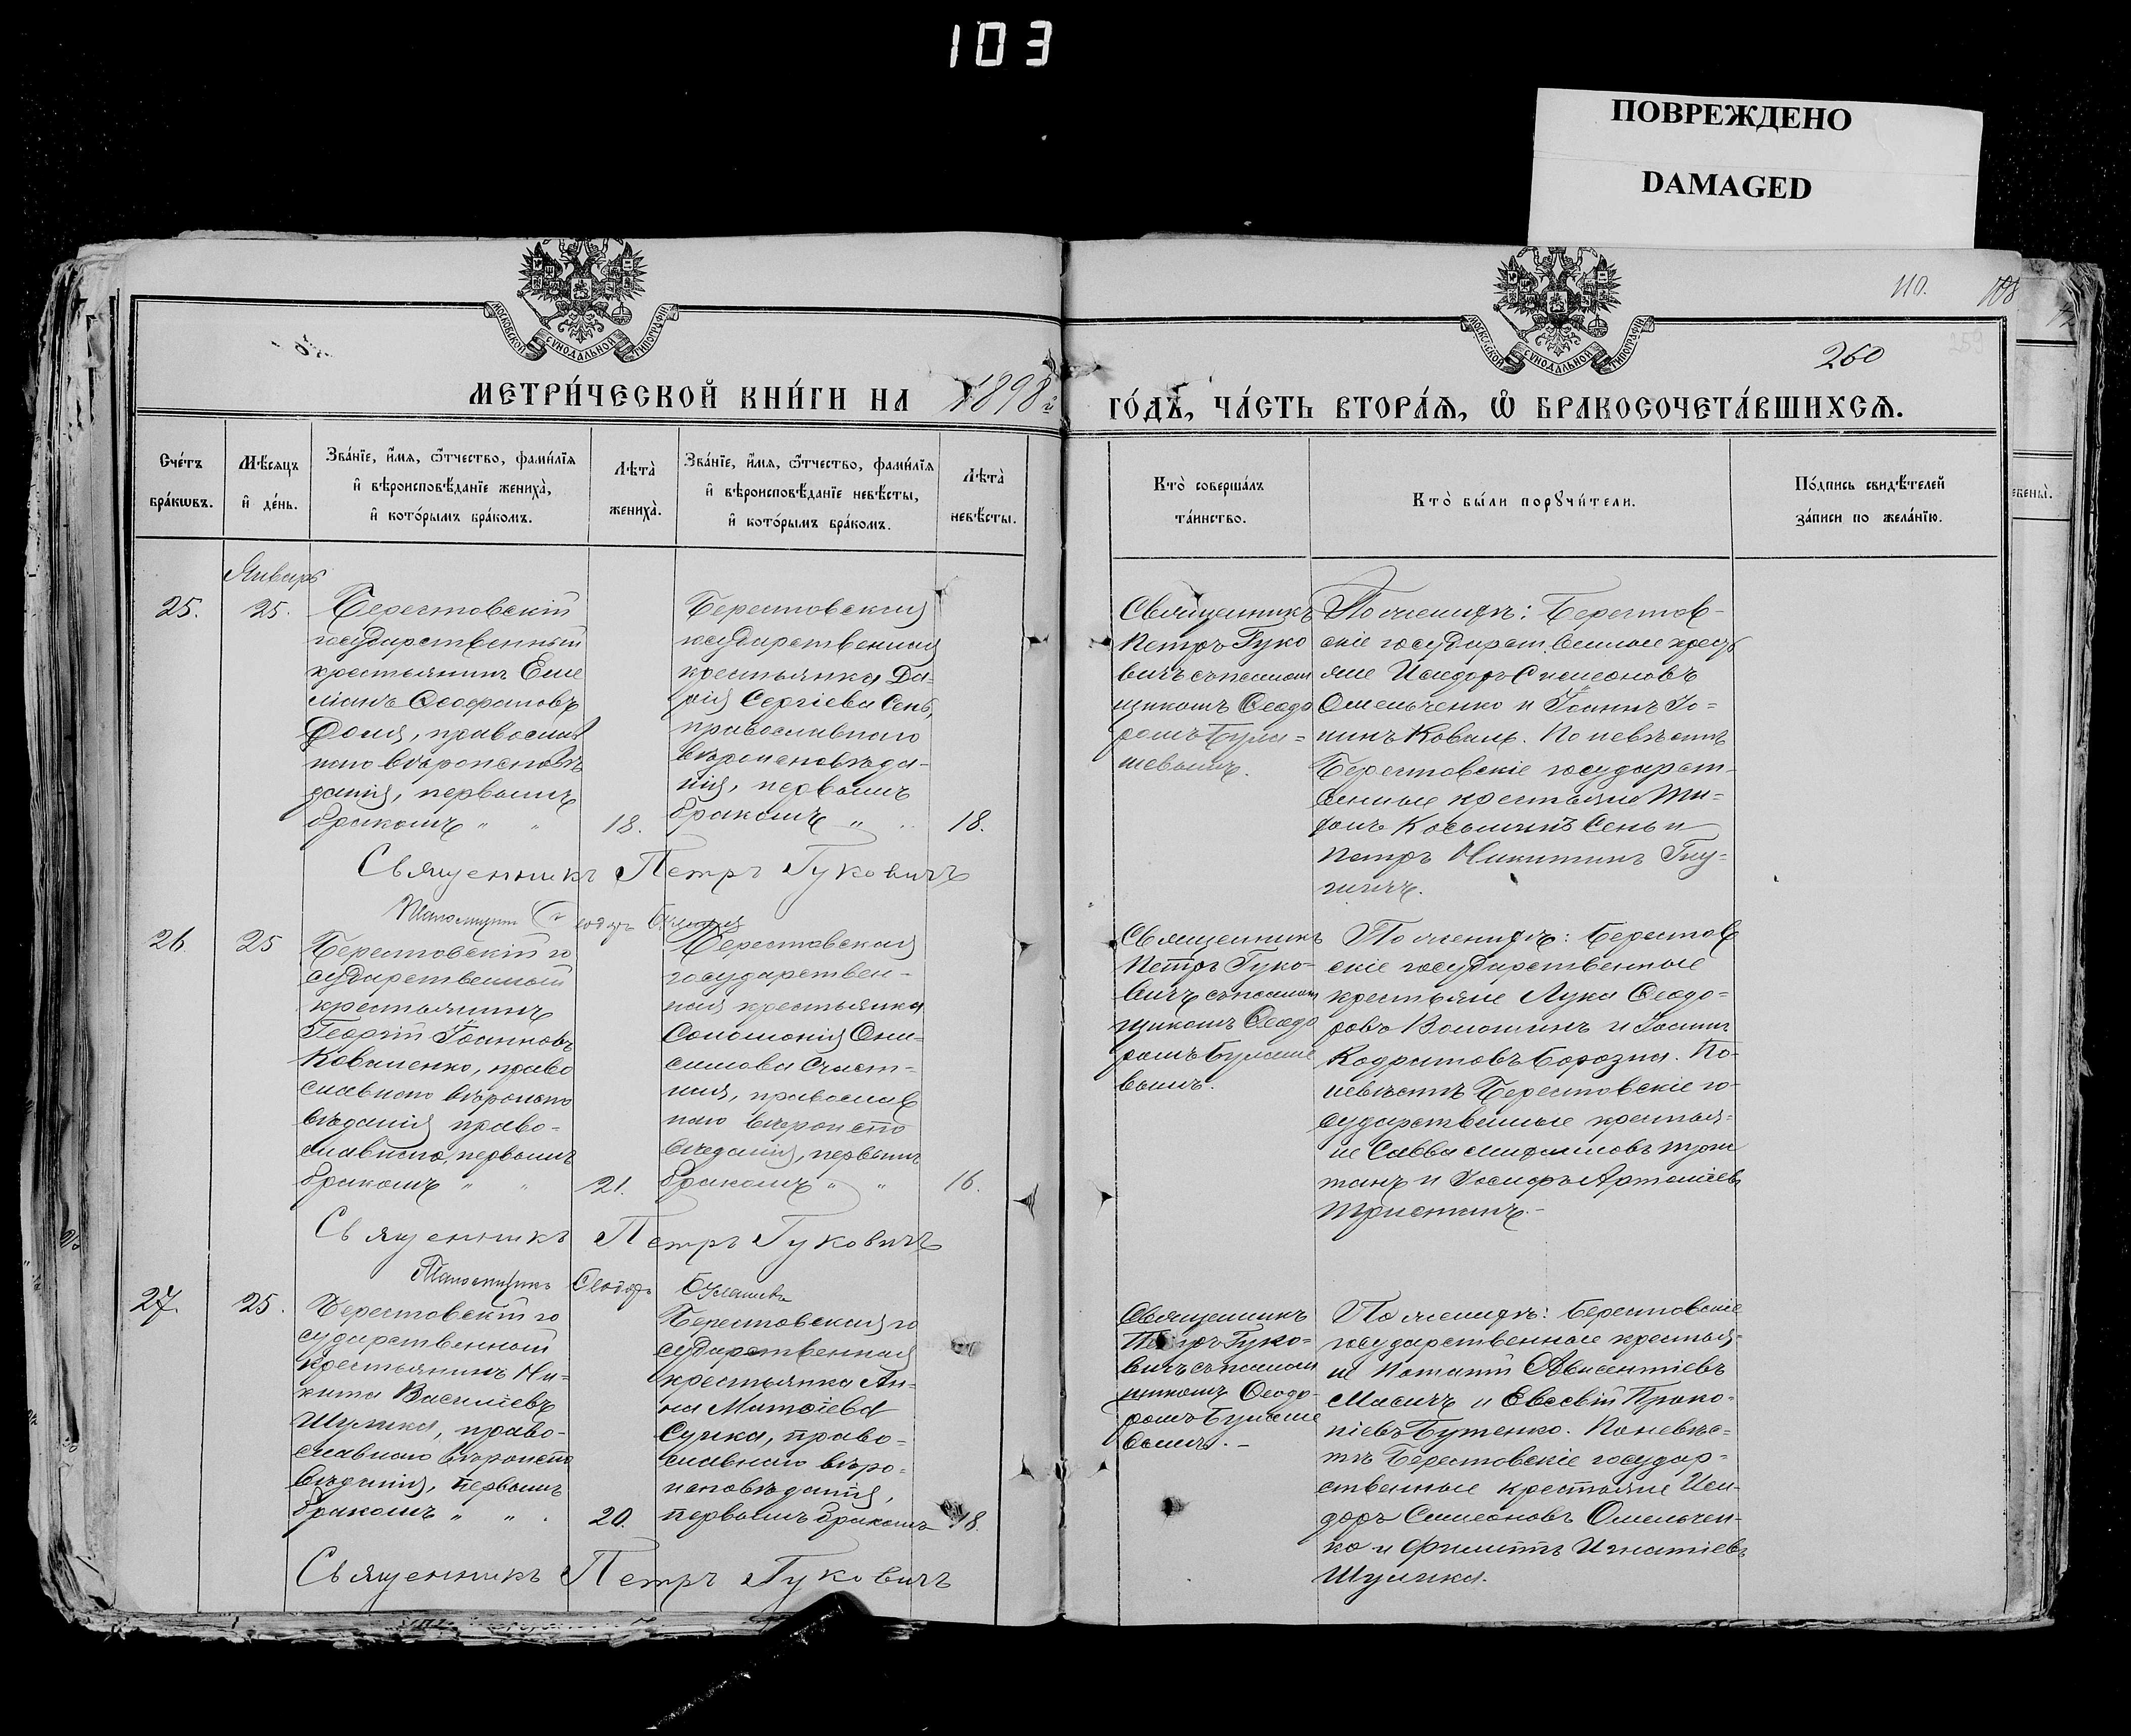 103
ПОВРЕЖДЕНО
DAMAGED
110.
МОСКОВСКОЙ СѴНОДАЛЬНОЙ ТИПОГРАФІИ
МОСКОВСКОЙ СѴНОДАЛЬНОЙ ТИПОГРАФІИ
260
259
МЕТРИ́ЧЕСКОЙ КНИ́ГИ НА 1898 й
ГО́ДЪ, ЧА́СТЬ ВТОРА́Ѧ, Ѽ БРАКОСОЧЕТА́ВШИХСѦ.
Сче́тъ
бра́кѡвъ.
Мѣ́сяцъ
и҆ де́нь.
Зва́нїе, и҆́мѧ, ѻ҆́тчество, фами́лїѧ
и҆ вѣроисповѣ́данїе жениха̀,
и҆ кото́рымъ бра́комъ.
Лѣта̀
жениха̀.
Зва́нїе, и҆́мѧ, ѻ҆́тчество, фами́лїѧ
и҆ вѣроисповѣ́данїе невѣ́сты,
и҆ кото́рымъ бра́комъ.
Лѣта̀
невѣ́сты.
Кто̀ соверша́лъ
та́инство.
Кто̀ бы́ли порꙋчи́тели.
По́дпись свидѣ́телей
за́писи по жела́нїю.
Январь
25.
25.
Берестовскій
государственный
крестьянинъ Еме
ліанъ Ѳеофановъ
Доля, православ
наго вѣроисповѣ
данія, первымъ
бракомъ " "
18.
Берестовская
государственная
крестьянка Да-
рія Сергіева Сень,
православнаго
вѣроисповѣда-
нія, первымъ
бракомъ " "
18.
Священникъ
Петръ Гуко
вичъ съ псалом
щикомъ Ѳеодо
ромъ Була=
шевымъ.
По женихѣ: Берестов-
скіе государственные крестья
яне Исидоръ Симеоновъ
Омельченко и Іоаннъ Іо=
нинъ Коваль. По невѣстѣ
Берестовскіе государст-
венные крестьяне
Косьминъ Сень и
Петръ Никитинъ
Священникъ Петръ Гуковичъ
Псаломщикъ Ѳеодоръ
26
25
Берестовскій го
сударственный
крестьянинъ
Георгій Іоанновъ
Коваленко, право
славнаго вѣроиспо
вѣданія право-
славнаго, первымъ
бракомъ " "
21.
Берестовская
государствен-
ная крестьянка
Соломонія Они-
симова Счаст-
ная, православ
наго вѣроиспо
вѣданія, первымъ
бракомъ " "
16.
Священникъ
Петръ Гуко-
вичъ съ псалом
щикомъ Ѳеодо
ромъ Булаше
вымъ.
По женихѣ: Берестов
скіе государственные
крестьяне Лука Ѳеодо-
ровъ Волошинъ и Іоаннъ
Кодратовъ Борозна. По-
невѣстѣ Берестовскіе го-
сударственные крестья-
не Савва
и Іосифъ Артеміевъ
Священникъ Петръ Гуковичъ
Псаломщикъ Ѳеодоръ Булашевъ
27.
25.
Берестовскій го
сударственный
крестьянинъ Ни-
кита Василіевъ
Шулика, право-
славнаго вѣроиспо
вѣданія, первымъ
бракомъ " "
20.
Берестовская го
сударственная
крестьянка Ан-
на Матѳіева
Сучка, право-
славнаго вѣро-
исповѣданія,
первымъ бракомъ
18.
Священникъ
Петръ Гуко-
вичъ съ псалом
щикомъ Ѳеодо-
ромъ Булаше
вымъ. -
По женихѣ: Берестовскіе
государственные крестья-
не Потапій Авксентіевъ
Масичъ и Евсевій Проко-
піевъ Бутенко. По невѣс-
тѣ Берестовскіе государ-
ственные крестьяне Иси-
доръ Симеоновъ Омельчен-
ко и Филиппъ Игнатіевъ
Шулика.
Священникъ Петръ Гуковичъ